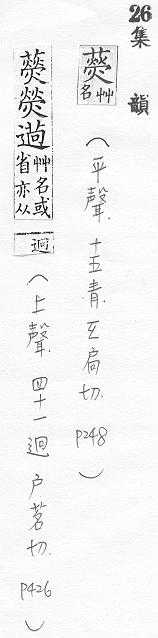 26 集韻
藀 艸名 (平聲.十五青.玄扃切.P248)
藀熒 艸名或省亦从逈 (上聲.四十一迥 户茗切.P426)